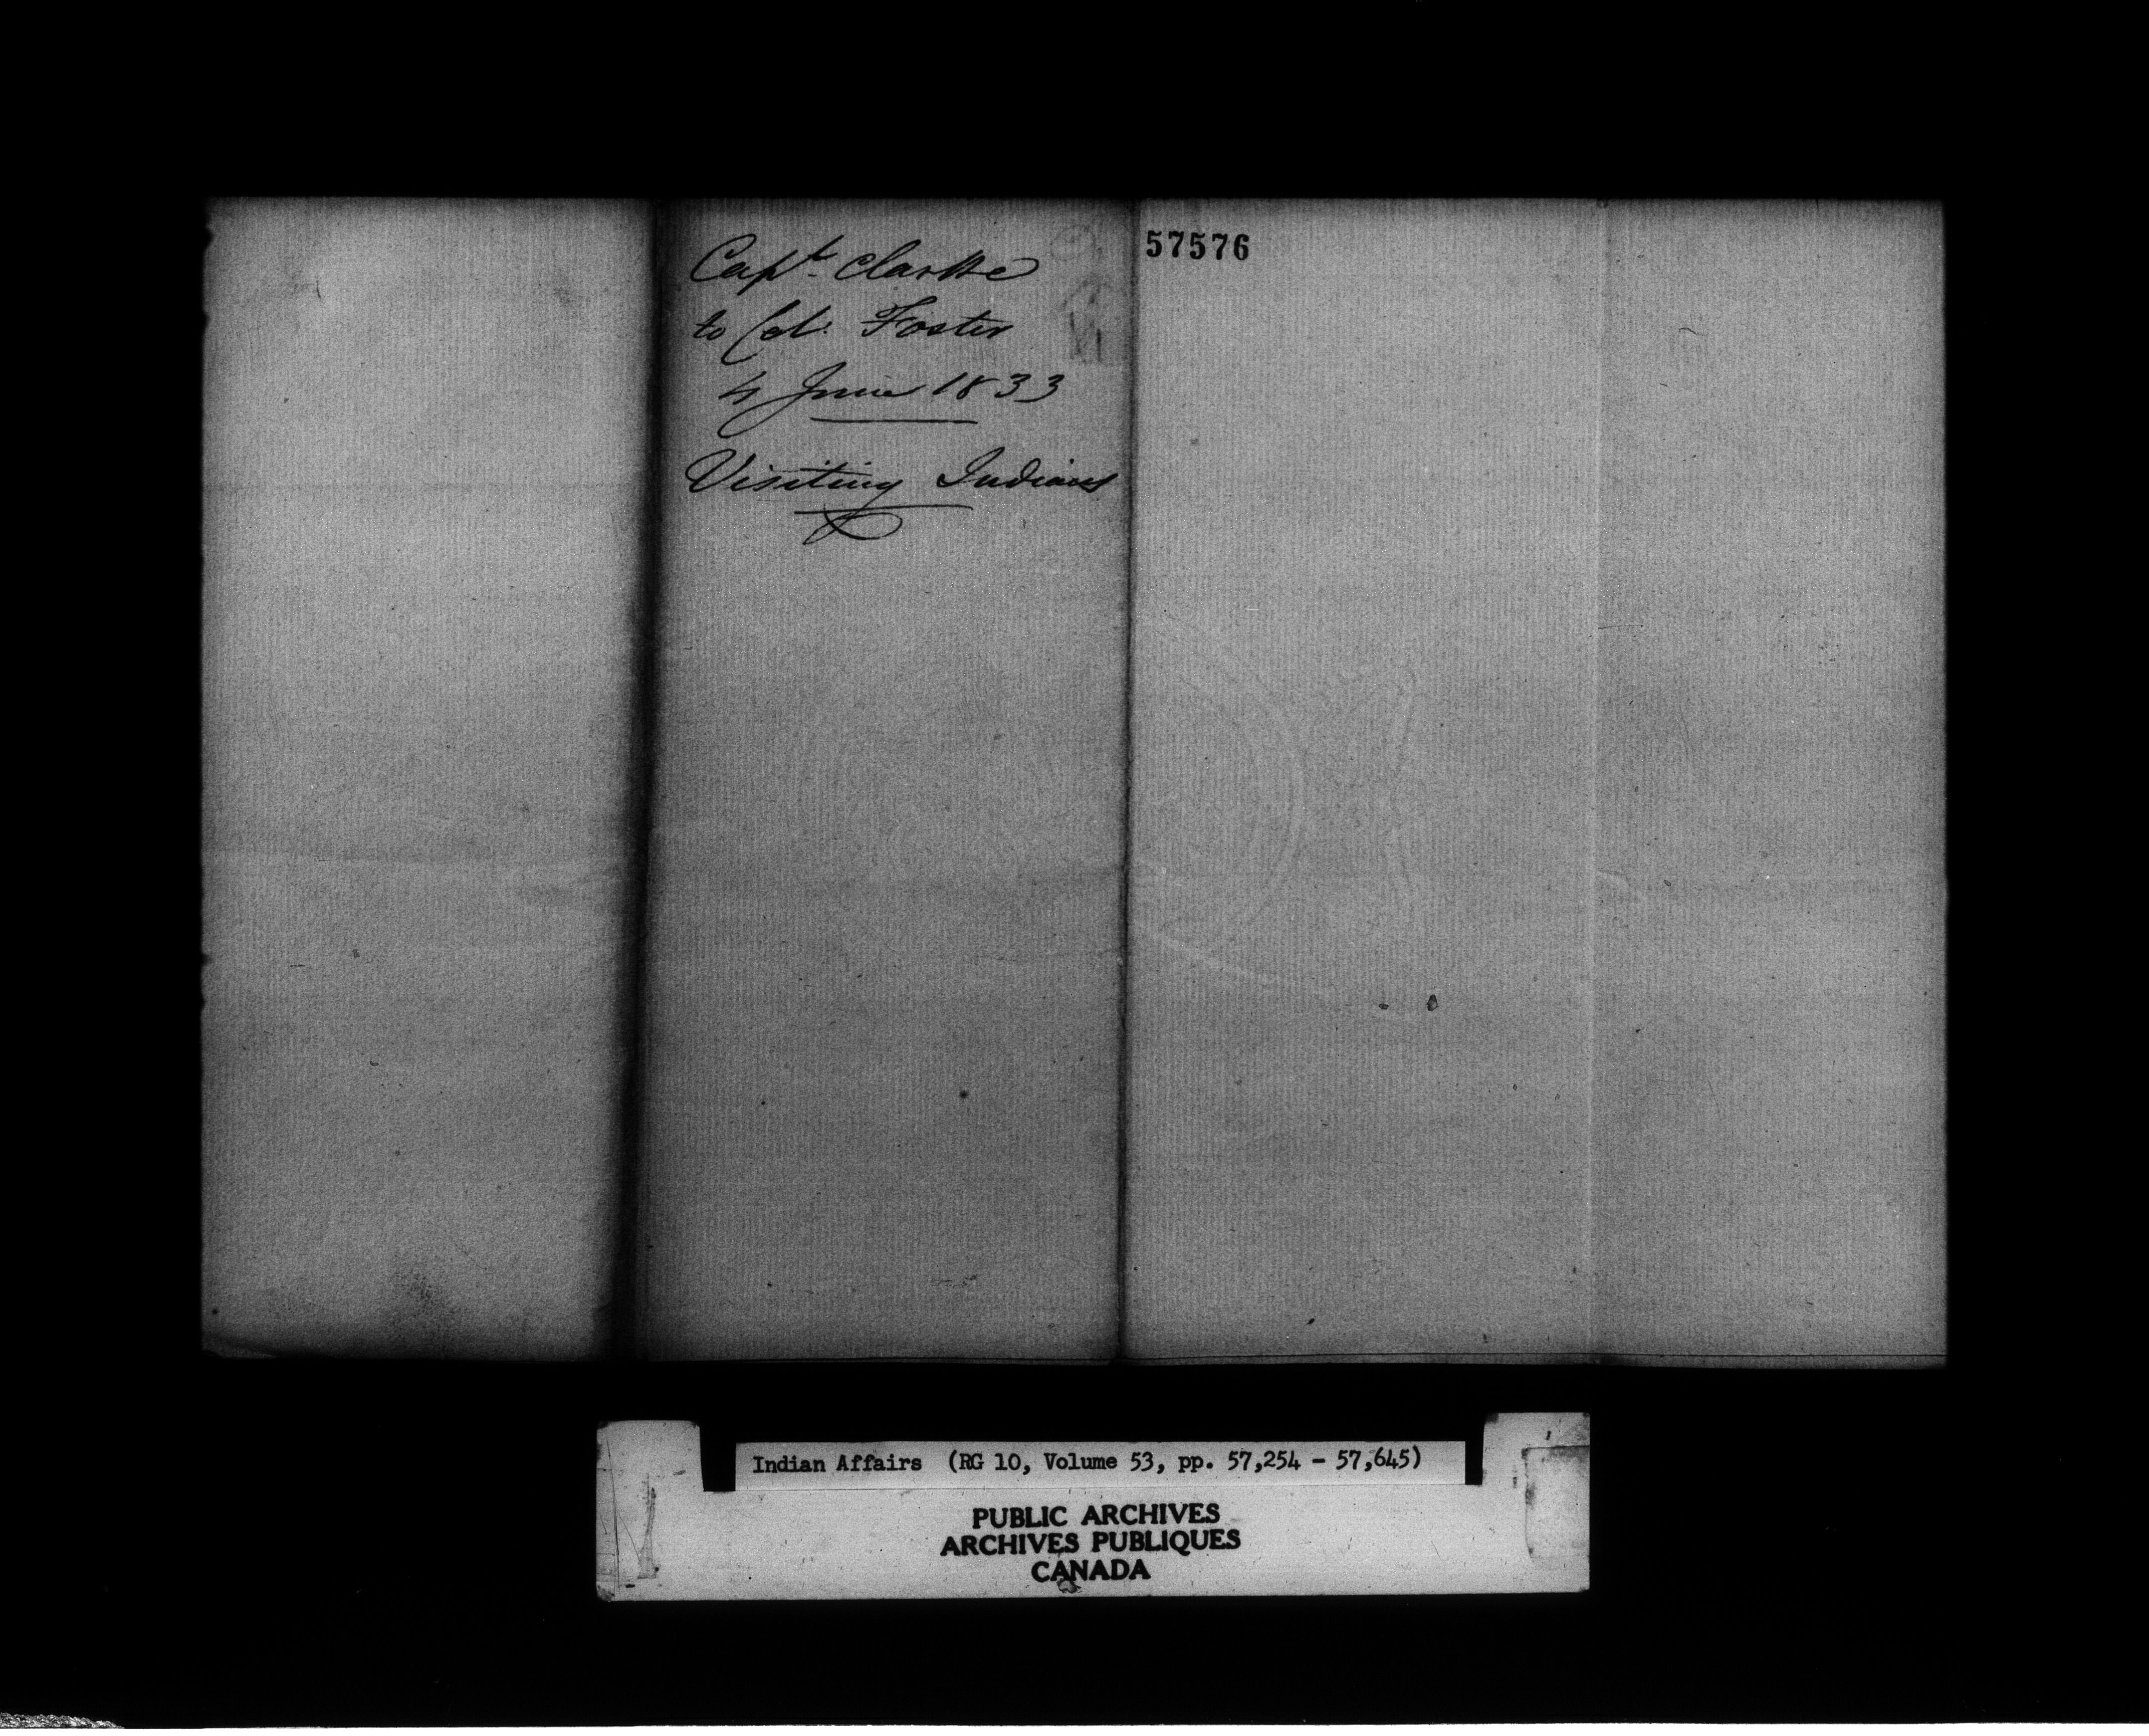 Capt. Clarke
to Col. Foster
4 June 1833
Visiting Indians
57576
Indian Affairs (RG 10, Volume 53, pp. 57,254 - 57,645)
PUBLIC ARCHIVES
ARCHIVES PUBLIQUES
CANADA